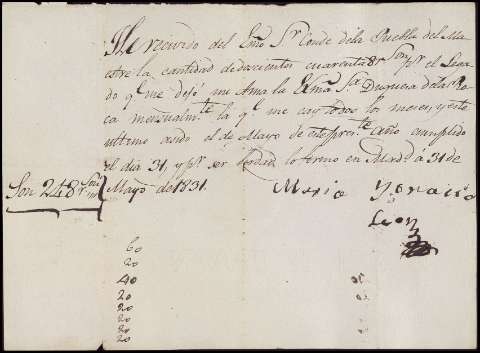 He recivido del Exmo Sr Conde dela Puebla del Ma
estre la cantidad de doscientos cuarenta 8 rs von pr el Lega
do q me dejó mi Ama la Exma Sa Duquesa dela Ro
ca mensualmte la q me cay todos los meses, y este
ultimo asido el de Mayo de este presente año cumplido
el dia 31, y pr ser verdad lo firmo en Madd á 31 de
Son 248 rs Mayo de 1831.
Maria Ygnacia
Leon
60
20
40
20
20
20
20
20